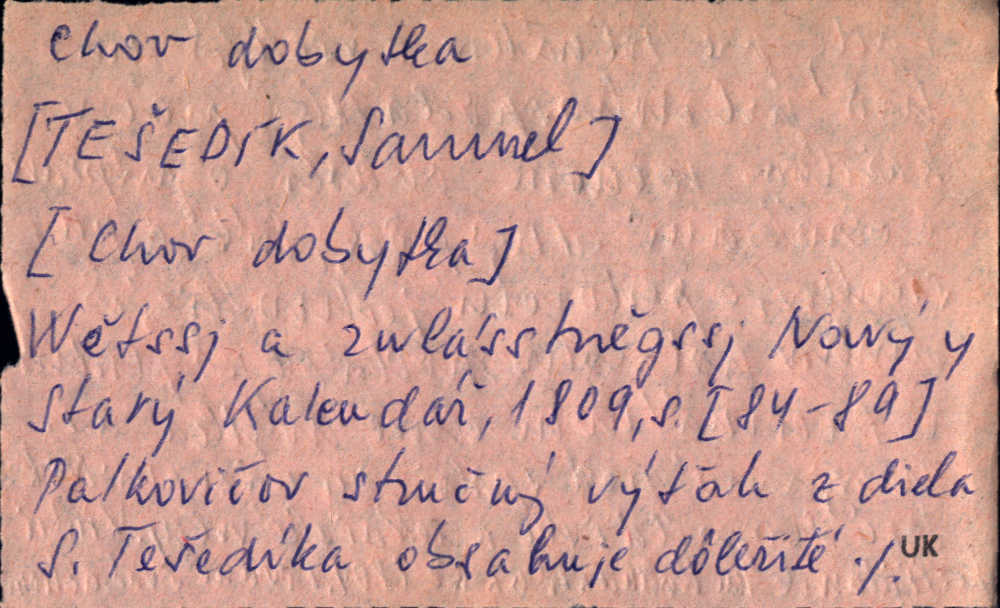 Chov dobytka
[TEŠEDÍK, Samuel]
[Chov dobytka]
Wětssj a zwlásstněgssj Nový y
starý Kalendář, 1809, s. [84-89]
Palkovičov stručný výťah z diela
S. Tešedíka obsahuje dôležité ./.
UK